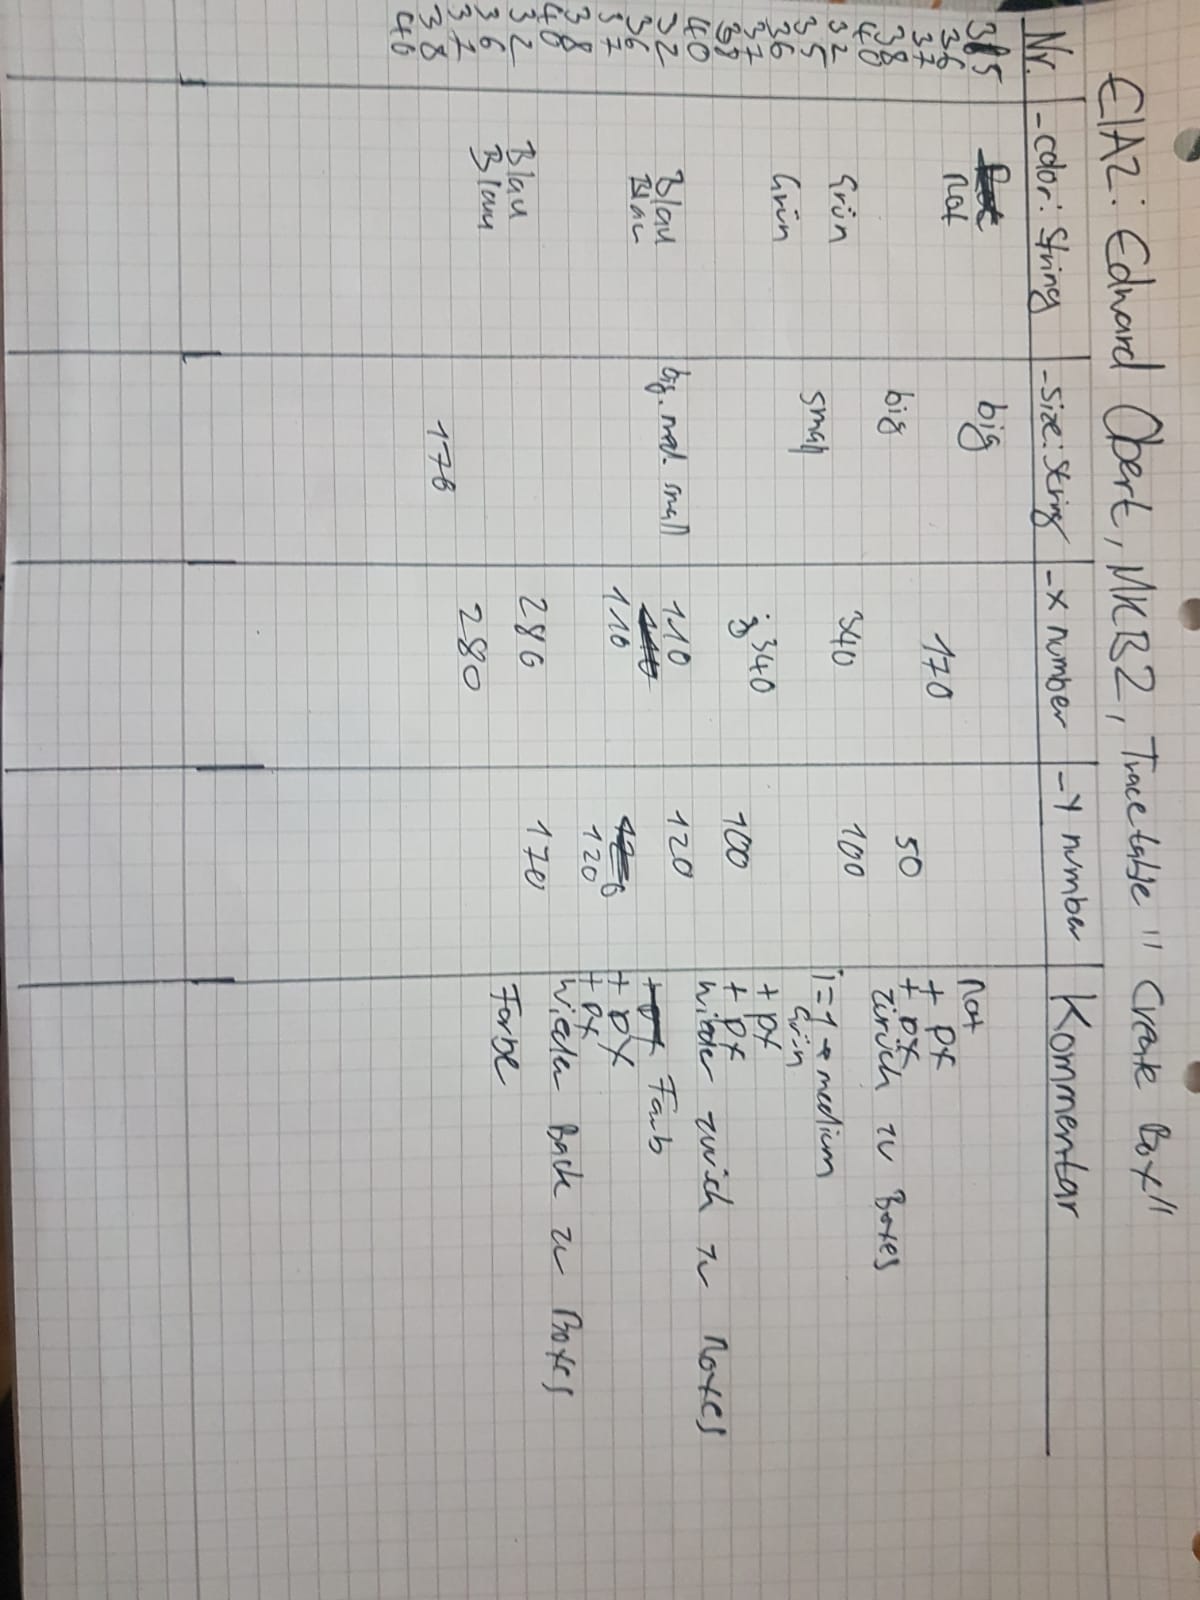 EIA2: Edward Obert, MKB2, Tracetable "Create Box"
Nr. _color: String _size: String _x number _y number Kommentar
35 big
36 Rot Rot
37 170 + px
38 50 + px
40 big zürück zu Boxes
32 Grün 340 100
35 small i=1 → medium
36 Grün Grün
37 340 + px
38 100 + px
40 Wieder zurück zu Boxes
32 Blau big. med. small 110 120
36 Blau Farb
37 110 + px
38 120 + px
40 Wieder Back zu Boxes
32 Blau 280 170
36 Blau Farbe
37 280
38 170
40